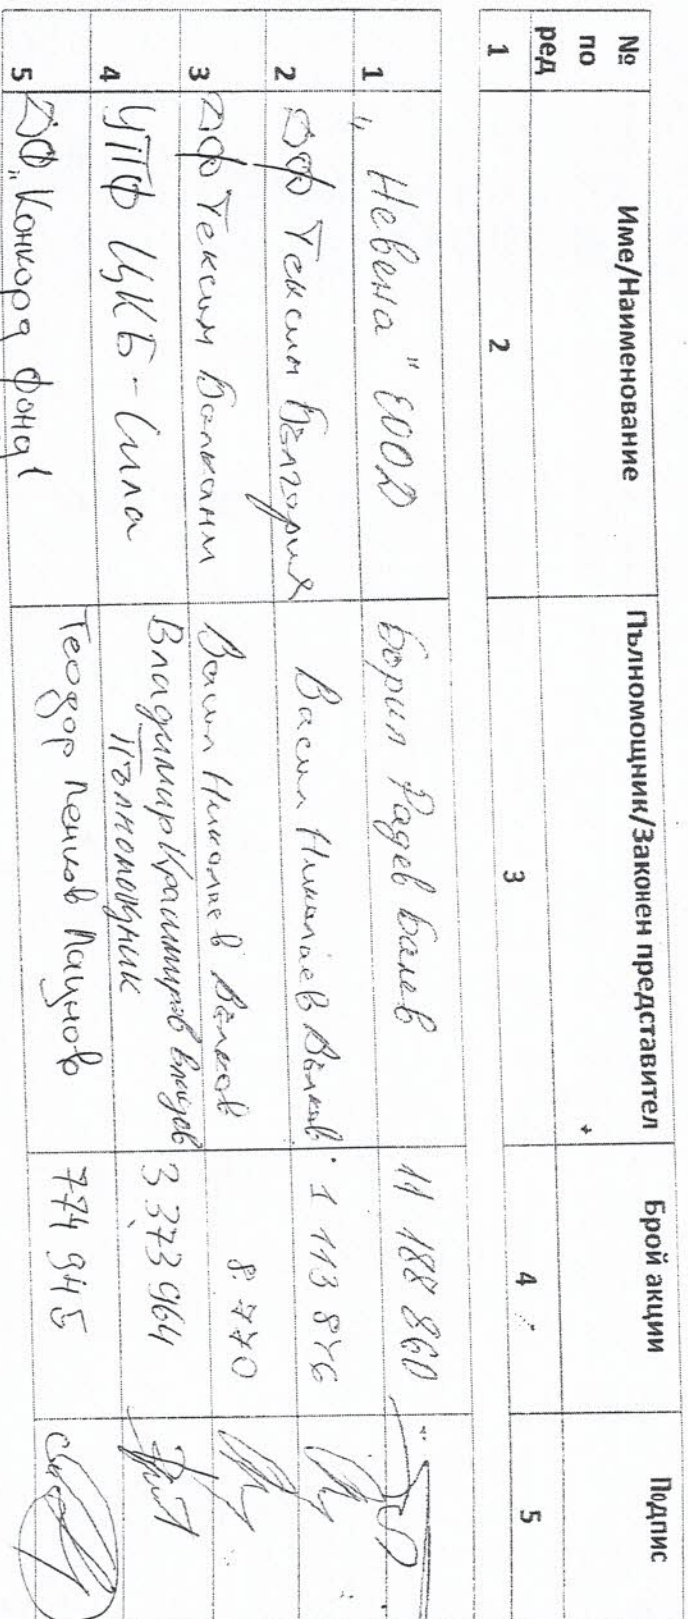 № по ред Име/Наименование Пълномощник/Законен представител Брой акции Подпис
1 2 3 4 5
1 „Невена" ЕООД Борил Радев Балев 11 188 860
2 ДФ Тексим България Васил Николаев Вълков 1 113 876
3 ДФ Тексим Балкани Васил Николаев Вълков 8 770
4 УПФ ЦКБ-Сила Владимир Красимиров Владов 3 373 964
Пълномощник
5 ДФ „Конкорд фонд 1 Теодор Пенков Паунов 774 945